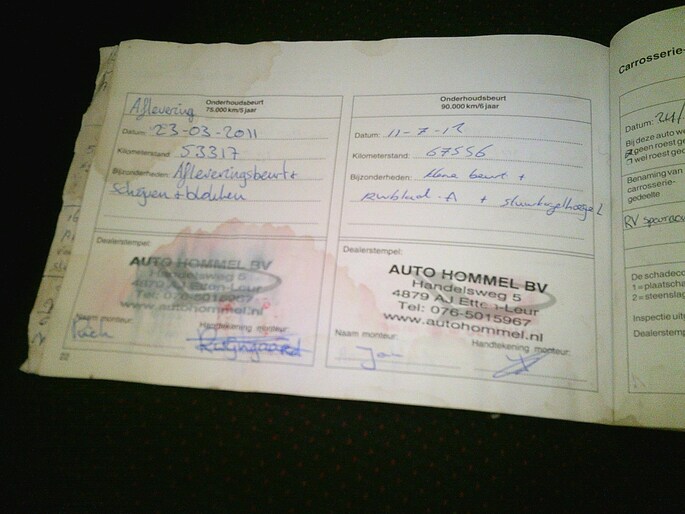 Aflevering
Onderhoudsbeurt
75.000 km/5 jaar
Datum: 23-03-2011
Kilometerstand: 53317
Bijzonderheden: Afleveringsbeurt+
Schijven + blokken
Dealerstempel:
AUTO HOMMEL BV
Handelsweg 5
4879 AJ Etten-Leur
Tel: 076-5015967
www.autohommel.nl
Naam monteur:
Handtekening monteur:
22
Onderhoudsbeurt
90.000 km/6 jaar
Datum: 11-7-12
Kilometerstand: 67556
Bijzonderheden: beurt +
+ stuurkogel
Dealerstempel:
AUTO HOMMEL BV
Handelsweg 5
4879 AJ Etten-Leur
Tel: 076-5015967
www.autohommel.nl
Naam monteur: Jan
Handtekening monteur:
Carrosserie-
Datum: 24/
Bij deze auto we
geen roest ge
wel roest geco
Benaming van
carrosserie-
gedeelte
RV
De schadeco
1 = plaatscha
2 = steenslag
Inspectie uit
Dealerstemp